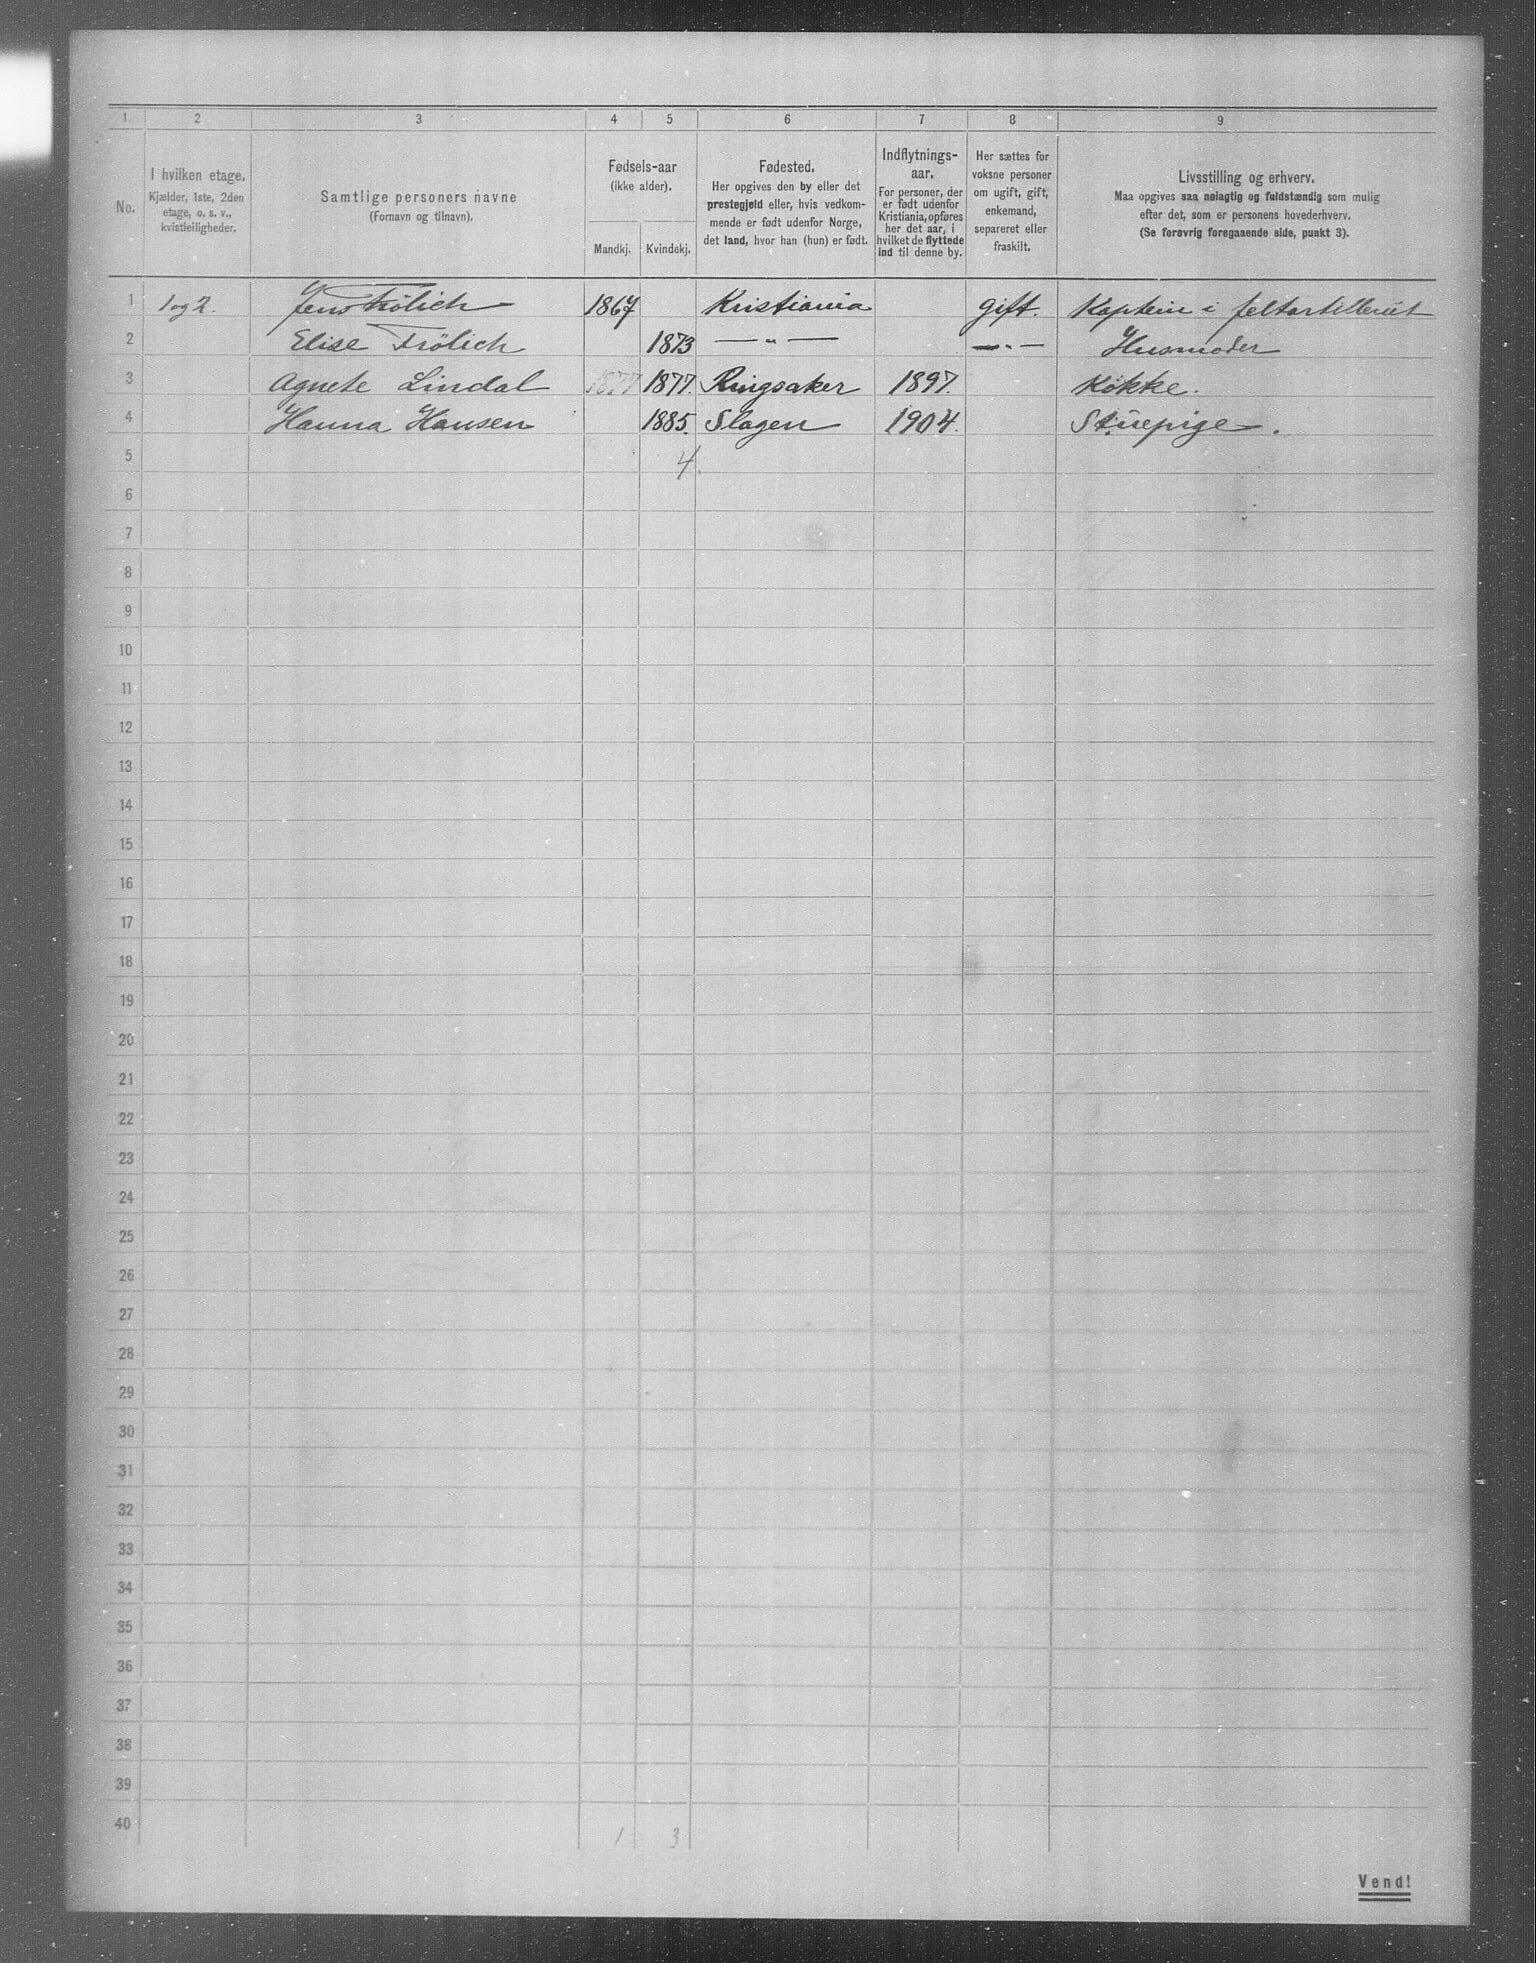 1 2 3 4 5 6 7 8 9
No.
I hvilken etage.
Kjælder, 1ste, 2den
etage, o. s. v.,
kvistleiligheder.
Samtlige personers navne
(Fornavn og tilnavn).
Fødsels-aar
(ikke alder).
Mandkj. Kvindekj.
Fødested.
Her opgives den by eller det
prestegjeld eller, hvis vedkom-
mende er født udenfor Norge,
det land, hvor han (hun) er født.
Indflytnings-
aar.
For personer, der
er født udenfor
Kristiania, opføres
her det aar, i
hvilket de flyttede
ind til denne by.
Her sættes for
voksne personer
om ugift, gift,
enkemand,
separeret eller
fraskilt.
Livsstilling og erhverv.
Maa opgives saa nøiagtig og fuldstændig som mulig
efter det, som er personens hovederhverv.
(Se forøvrig foregaaende side, punkt 3).
1 1 og 2. Jens Frölich 1867 Kristiania gift. Kaptein i feltartilleriet
2 Elise Frölich 1873 — " — — " — Husmoder
3 Agnete Lindal 1877 1877. Ringsaker 1897. Køkke.
4 Hanna Hansen 1885. Slagen 1904. Stuepige.
5 4.
6
7
8
9
10
11
12
13
14
15
16
17
18
19
20
21
22
23
24
25
26
27
28
29
30
31
32
33
34
35
36
37
38
39
40 1 3
Vend!